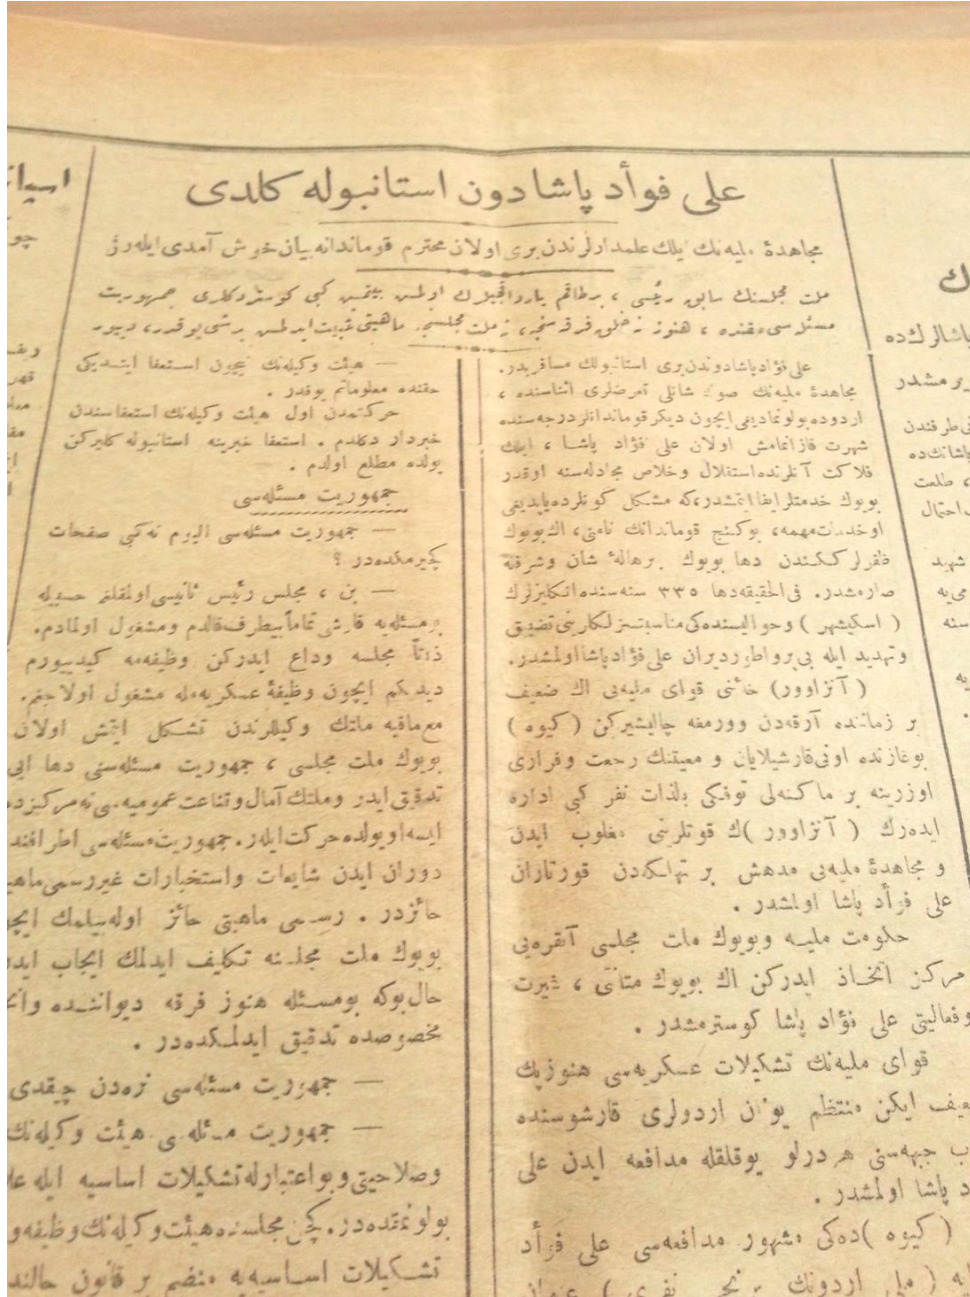 علی فوأد پاشا دون استانبوله کلدی
مجاهدهٔ ملیه‌نك ایلك علمدارلرندن بری اولان محترم قوماندانه بیان خوش آمدی ایله‌رز
ملت مجلسنك سابق رئیسی ، برطاقم یاردا قجیلرك اولمش بیتمش کبی کوستردکلری جمهوریت
مسئله‌سی حقنده ، هنوز نه خلق فرقه‌سنجه ، نه ملت مجلسنجه ماهیتی تثبیت ایدلمش برشی یوقدر، دییور
علی فؤاد پاشا دوندن بری استانبولك مسافریدر.
مجاهدهٔ ملیه‌نك صوك شانلی تعرضلری اثناسنده ،
اردوده بولونمادیغی ایچون دیکر قوماندانلر درجه‌سنده
شهرت قازانمامش اولان علی فؤاد پاشا ، ایلك
فلاکت آنلرنده استقلال وخلاص مجادله‌سنه اوقدر
بویوك خدمتلر ایفا ایتمشدر، که مشکل کونلرده یاپدیغی
او خدمات مهمه، بو کنج قوماندانك نامنی، اك بویوك
ظفرلرکیندن دها بویوك برهالهٔ شان وشرفله
صارمشدر. فی الحقیقه دها ۳۳۵ سنه‌سنده انکلیزلرك
( اسکیشهر ) وحوالیسنده‌کی مناسبتسزلکلرینی تضییق
وتهدید ایله بی‌پروا طوردیران علی فؤاد پاشا اولمشدر.
( آنزاوور) خائنی قوای ملیه‌یی اك ضعیف
بر زماننده آرقه‌دن وورمغه چالیشیرکن ( کیوه )
بوغازنده اونی قارشیلایان و معیتنك رجعت وفراری
اوزرینه بر ماکنه‌لی توفنکی بالذات نفر کبی اداره
ایده‌رك ( آنزاوور )ك قوتلرینی مغلوب ایدن
و مجاهدهٔ ملیه‌یی مدهش بر تهلکه‌دن قورتاران
علی فوأد پاشا اولمشدر .
حکومت ملیه وبویوك ملت مجلسی آنقره‌یی
مرکز اتخاذ ایدرکن اك بویوك متانتی ، غیرت
وفعالیتی علی فؤاد پاشا کوسترمشدر .
قوای ملیه‌نك تشکیلات عسکریه‌سی هنوز پك
ضعیف ایکن منتظم یونان اردولری قارشوسنده
جبهه‌سنی هر درلو یوقلقله مدافعه ایدن علی
پاشا اولمشدر .
( کیوه )ده‌کی مشهور مدافعه‌سی علی فوأد
( ملی اردونك برنجی نفری ) عنوان
— هیئت وکیله‌نك نیچون استعفا ایتدیکی
حقنده معلوماتم یوقدر .
حرکتمدن اول هیئت وکیله‌نك استعفا سندن
خبردار دکلدم . استعفا خبرینه استانبوله کلیرکن
یولده مطلع اولدم .
جمهوریت مسئله‌سی
— جمهوریت مسئله‌سی الیوم نه کبی صفحات
کچیرمکده‌در ؟
— بن ، مجلس رئیس ثانیسی اولمقلغم حسبیله
بو مسئله‌یه قارشی تماماً بیطرف قالدم ومشغول اولمادم.
ذاتاً مجلسه وداع ایدرکن وظیفه‌مه کیدییورم
دیدیکم ایچون وظیفهٔ عسکریه‌مله مشغول اولاجغم.
مع مافیه ملتك وکیللرندن تشکل ایتمش اولان
بویوك ملت مجلسی ، جمهوریت مسئله‌سنی دها ایی
تدقیق ایدر وملتك آمال وقناعت عمومیه‌سی نه مرکزده
ایسه او یولده حرکت ایلر. جمهوریت مسئله‌سی اطرافنده
دوران ایدن شایعات واستخبارات غیر رسمی ماهیتی
حائزدر . رسمی ماهیتی حائز اوله‌بیلمك ایچون
بویوك ملت مجلسنه تکلیف ایدلمك ایجاب ایدر
حال بوکه بو مسئله هنوز فرقه دیواننده
مخصوصده تدقیق ایدلمکده‌در .
— جمهوریت مسئله‌سی نره‌دن چیقدی
— جمهوریت مسئله‌سی هیئت وکیله‌نك
وصلاحیتی وبو اعتبارله تشکیلات اساسیه ایله
بولونمقده‌در. کچن مجلسده هیئت وکیله‌نك وظیفه و
تشکیلات اساسیه‌یه منضم بر قانون حالنده